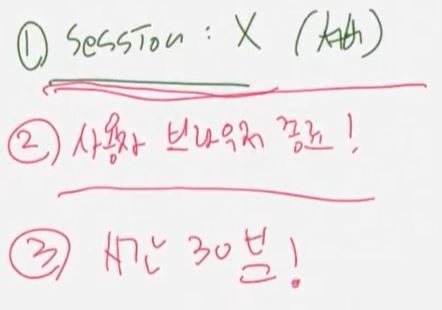 ① Session : X (서버)
② 사용자 브라우저 종료!
③ 시간 30분!